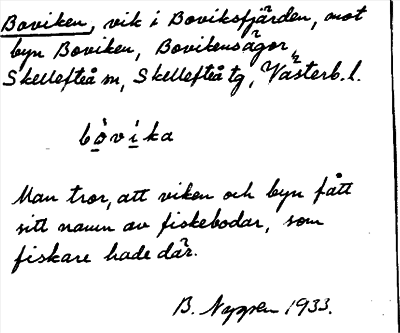 Boviken, vik i Boviksfjärden, mot
byn Boviken, Bovikensågor,
Skellefteå m, Skellefteå tg, Västerb. l.
bò̲vi̲ka
Man tror, att viken och byn fått
sitt namn av fiskebodar, som
fiskare hade där.
B. Nyppen 1933.